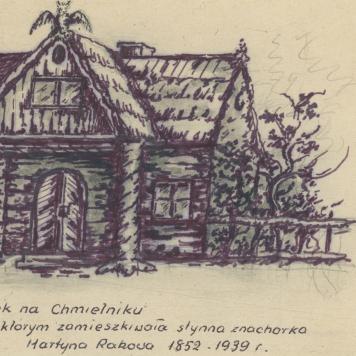 na Chmielniku
którym zamieszkiwała słynna znachorka
Martyna Rakowa 1852-1939 r.